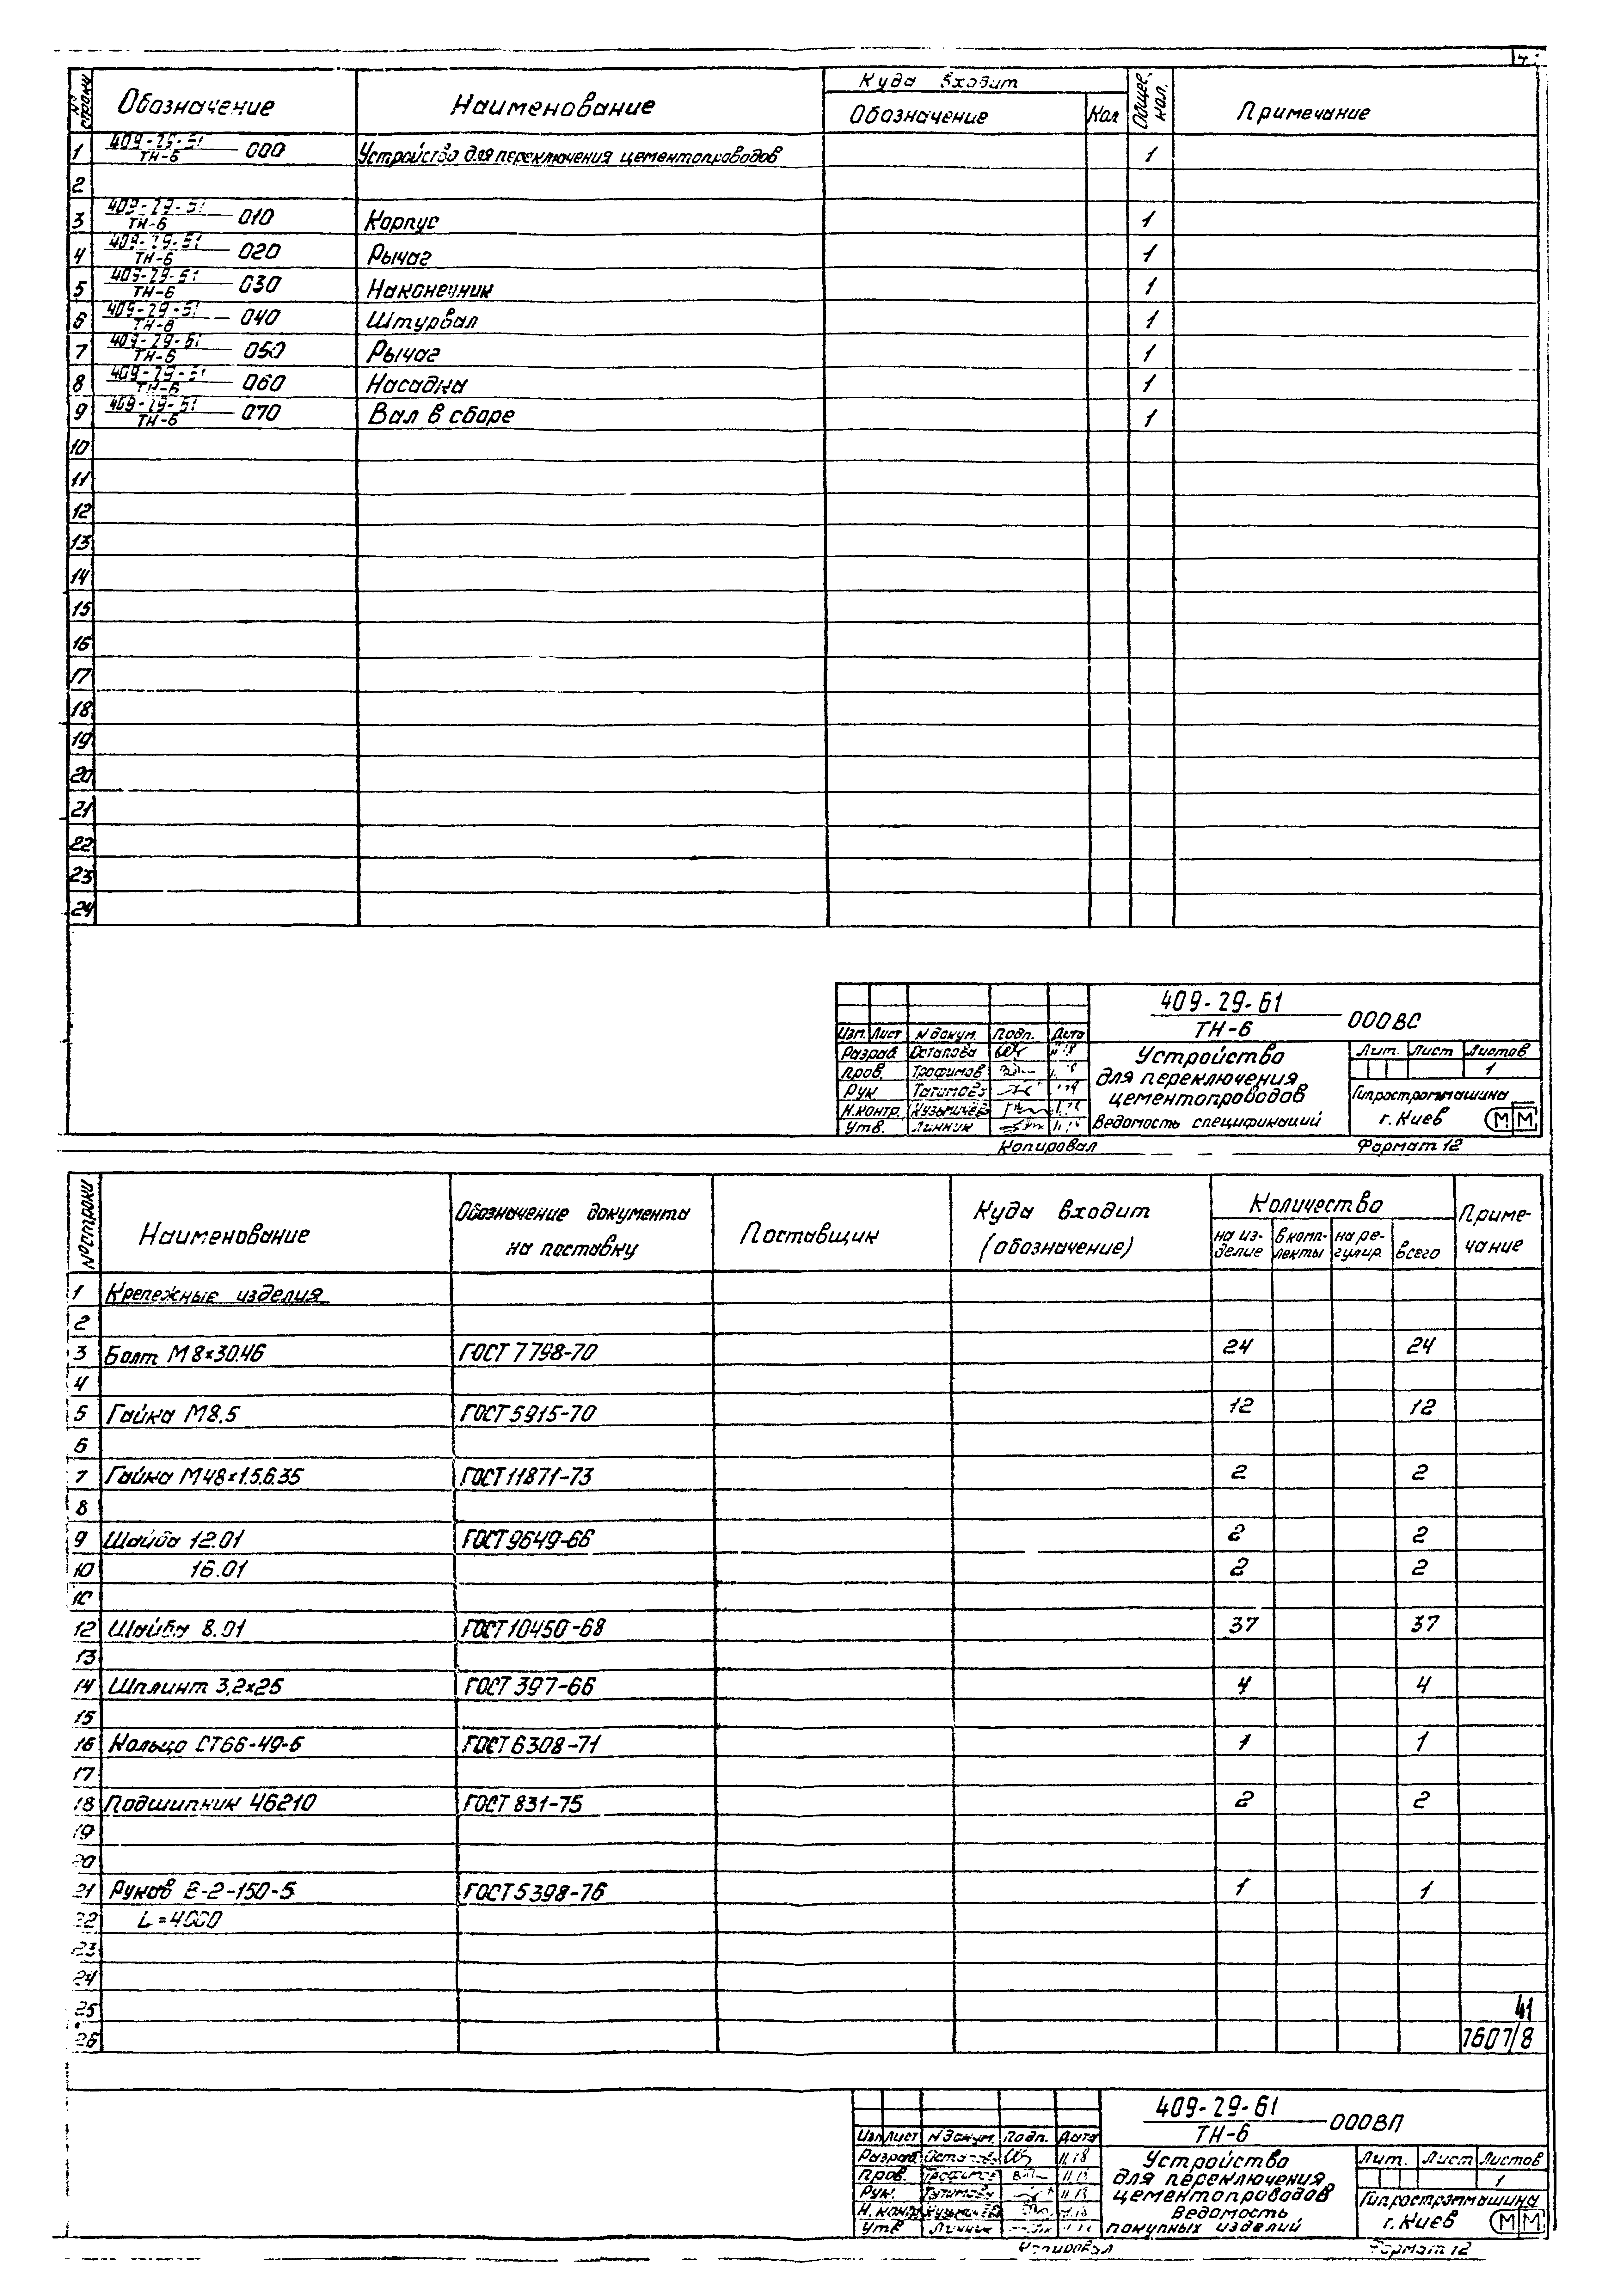 № строки Обозначение Наименование Куда входит Общее кол. Примечание
Обозначение Кол
1 409-29-61/ТН-6 000 Устройство для переключения цементопроводов 1
2
3 409-29-61/ТН-6 010 Корпус 1
4 409-29-61/ТН-6 020 Рычаг 1
5 409-29-61/ТН-6 030 Наконечник 1
6 409-29-61/ТН-6 040 Штурвал 1
7 409-29-61/ТН-6 050 Рычаг 1
8 409-29-61/ТН-6 060 Насадка 1
9 409-29-61/ТН-6 070 Вал в сборе 1
10
11
12
13
14
15
16
17
18
19
20
21
22
23
24
409-29-61/ТН-6 000ВС
Изм. Лист №докум. Подп. Дата
Разраб. Остапова
Пров. Трофимов
Рук
Н.контр.
Утв. Линник
Устройство
для переключения
цементопроводов
Ведомость спецификаций
Лит. Лист Листов
1
Гипростроммашина
г. Киев
ММ
Копировал Формат 12
№ строки Наименование Обозначение документа на поставку Поставщик Куда входит (обозначение) Количество Примечание
на изделие в комплекты на регулир. всего
1 Крепежные изделия
2
3 Болт М8×30.46 ГОСТ 7798-70 24 24
4
5 Гайка М8.5 ГОСТ 5915-70 12 12
6
7 Гайка М48×1.5.6.35 ГОСТ 11871-73 2 2
8
9 Шайба 12.01 ГОСТ 9649-66 2 2
10 16.01 2 2
12 Шайба 8.01 ГОСТ 10450-68 37 37
13
14 Шплинт 3,2×25 ГОСТ 397-66 4 4
15
16 Кольцо СТ66-49-5 ГОСТ 6308-71 1 1
17
18 Подшипник 46210 ГОСТ 831-75 2 2
19
20
21 Рукав Б-2-150-5 ГОСТ 5398-76 1 1
22 L=4000
23
24
25 41
26 7607/8
409-29-61/ТН-6 000ВП
Изм Лист №докум. Подп. Дата
Разраб
Пров.
Рук.
Н. контр
Утв Линник
Устройство
для переключения
цементопроводов
Ведомость
покупных изделий
Лит. Лист Листов
1
Гипростроммашина
г. Киев
ММ
Копировал Формат 12